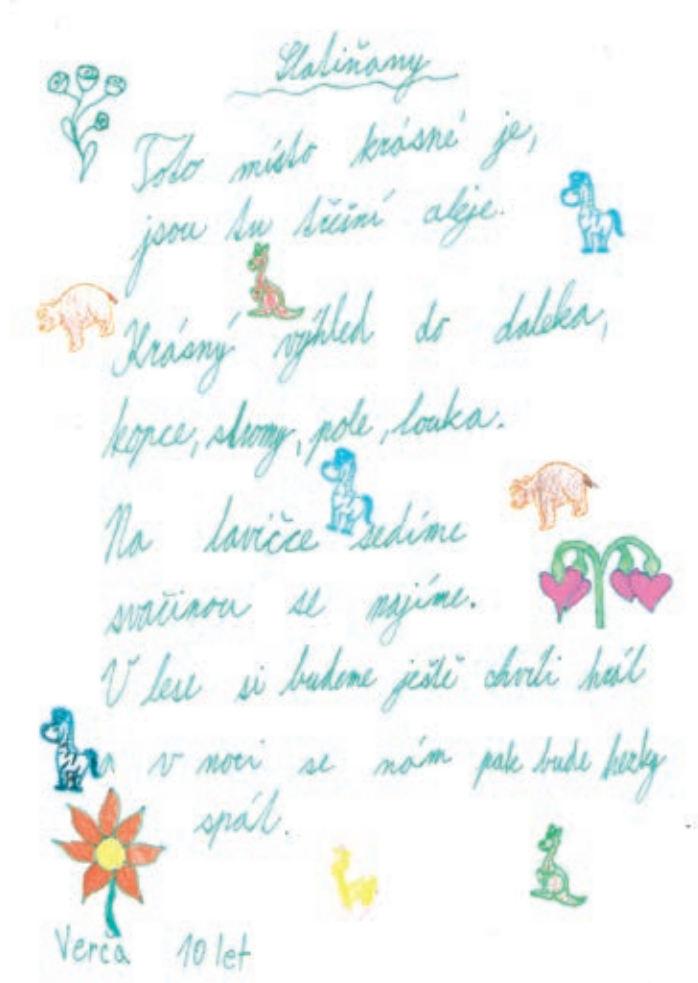 Slatiňany
Toto místo krásné je,
jsou tu třešní aleje.
Krásný výhled do daleka,
kopce, stromy, pole, louka.
Na lavičce sedíme
svačinou se najíme.
V lese si budeme ještě chvíli hrát
a v noci se nám pak bude hezky
spát.
Verča 10 let